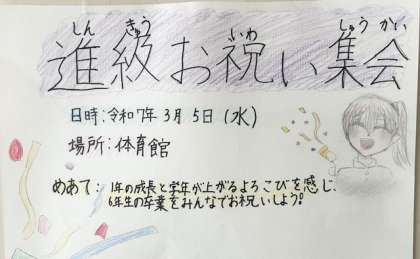 しん きゅう いわ しゅう かい
進級お祝い集会
日時:令和7年 3月 5日(水)
場所:体育館
めあて:1年の成長と学年が上がるよろこびを感じ、
6年生の卒業をみんなでお祝いしよう!